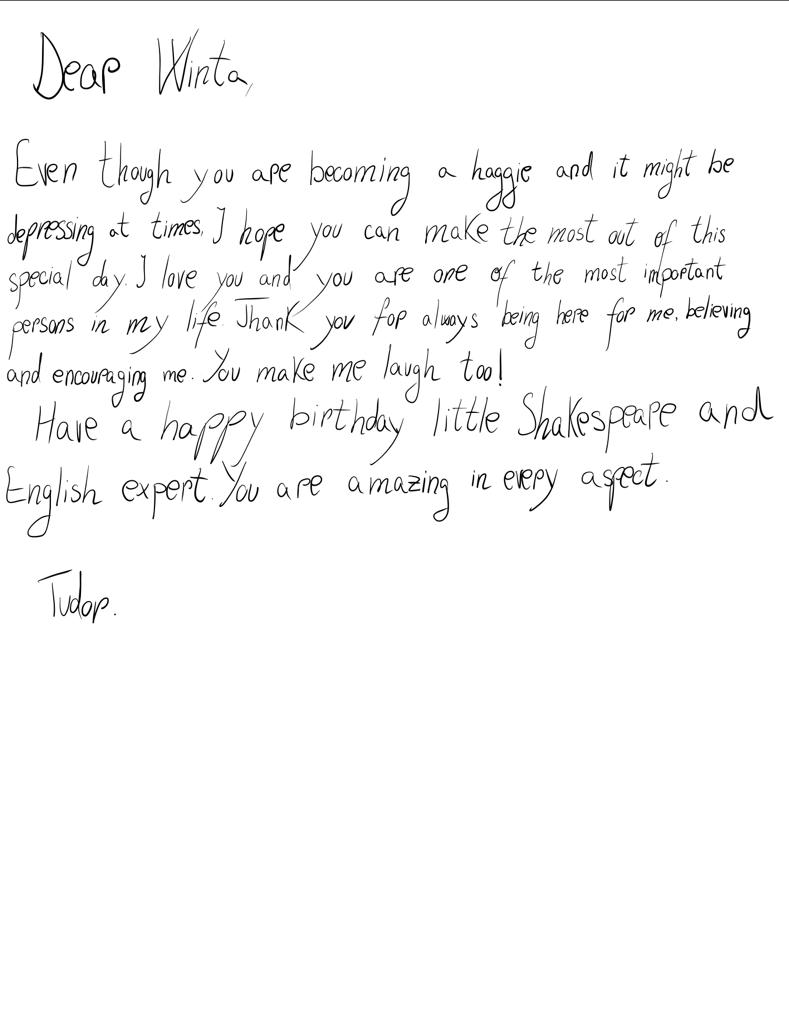 Dear Winta,
Even though you are becoming a haggie and it might be
depressing at times, I hope you can make the most out of this
special day. I love you and you are one of the most important
persons in my life. Thank you for always being here for me, believing
and encouraging me. You make me laugh too!
Have a happy birthday little Shakespeare and
English expert. You are amazing in every aspect.
Tudor.